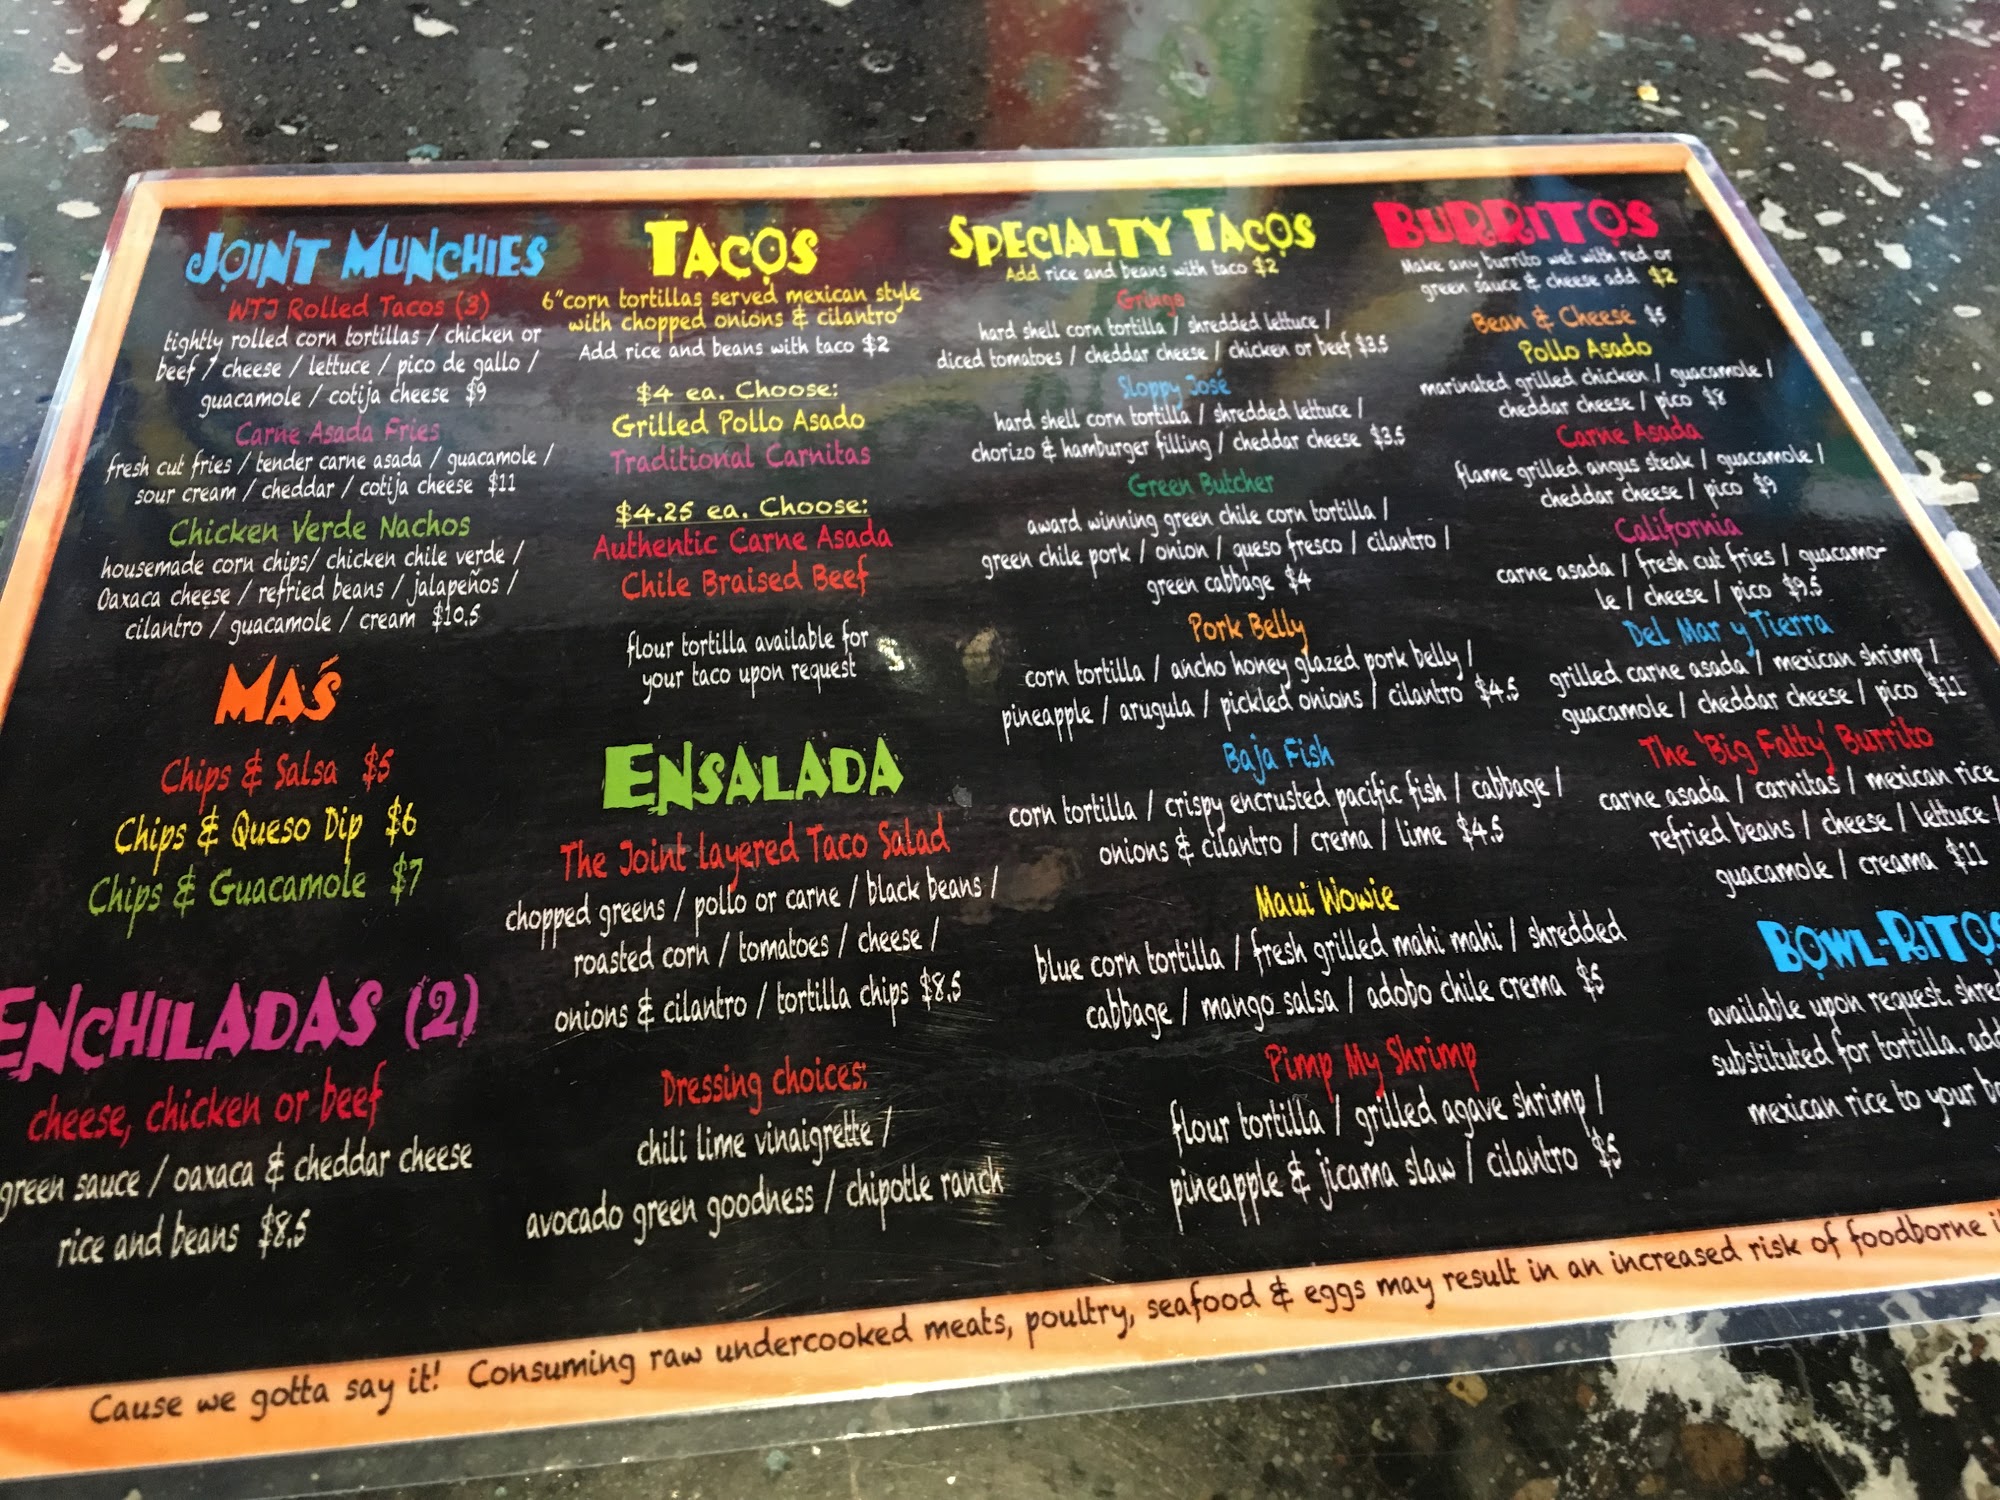 JOINT MUNCHIES
WTJ Rolled Tacos (3)
tightly rolled corn tortillas / chicken or
beef / cheese / lettuce / pico de gallo /
guacamole / cotija cheese $9
Carne Asada Fries
fresh cut fries / tender carne asada / guacamole /
sour cream / cheddar / cotija cheese $11
Chicken Verde Nachos
housemade corn chips/ chicken chile verde /
Oaxaca cheese / refried beans / jalapeños /
cilantro / guacamole / cream $10.5
MAS
Chips & Salsa $5
Chips & Queso Dip $6
Chips & Guacamole $7
ENCHILADAS (2)
cheese, chicken or beef
green sauce / oaxaca & cheddar cheese
rice and beans $8.5
TACOS
6"corn tortillas served mexican style
with chopped onions & cilantro
Add rice and beans with taco $2
$4 ea. Choose:
Grilled Pollo Asado
Traditional Carnitas
$4.25 ea. Choose:
Authentic Carne Asada
Chile Braised Beef
flour tortilla available for
your taco upon request
ENSALADA
The Joint layered Taco Salad
chopped greens / pollo or carne / black beans /
roasted corn / tomatoes / cheese /
onions & cilantro / tortilla chips $8.5
Dressing choices:
chili lime vinaigrette /
avocado green goodness / chipotle ranch
SPECIALTY TACOS
Add rice and beans with taco $2
Gringo
hard shell corn tortilla / shredded lettuce /
diced tomatoes / cheddar cheese / chicken or beef $3.5
Sloppy José
hard shell corn tortilla / shredded lettuce /
chorizo & hamburger filling / cheddar cheese $3.5
Green Butcher
award winning green chile corn tortilla /
green chile pork / onion / queso fresco / cilantro /
green cabbage $4
Pork Belly
corn tortilla / ancho honey glazed pork belly /
pineapple / arugula / pickled onions / cilantro $4.5
Baja Fish
corn tortilla / crispy encrusted pacific fish / cabbage /
onions & cilantro / crema / lime $4.5
Maui Wowie
blue corn tortilla / fresh grilled mahi mahi / shredded
cabbage / mango salsa / adobo chile crema $5
Pimp My Shrimp
flour tortilla / grilled agave shrimp /
pineapple & jicama slaw / cilantro $5
BURRITOS
Make any burrito wet with red or
green sauce & cheese add $2
Bean & Cheese $5
Pollo Asado
marinated grilled chicken / guacamole /
cheddar cheese / pico $8
Carne Asada
flame grilled angus steak / guacamole /
cheddar cheese / pico $9
California
carne asada / fresh cut fries / guacamo-
le / cheese / pico $9.5
Del Mar y Tierra
grilled carne asada / mexican shrimp /
guacamole / cheddar cheese / pico $11
The 'Big Fatty' Burrito
carne asada / carnitas / mexican rice
refried beans / cheese / lettuce /
guacamole / creama $11
BOWL-RITOS
available upon request. shred
substituted for tortilla. add
mexican rice to your b
Cause we gotta say it! Consuming raw undercooked meats, poultry, seafood & eggs may result in an increased risk of foodborne i